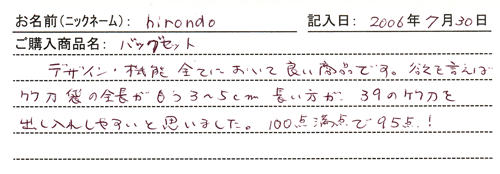 お名前(ニックネーム): hirondo 記入日: 2006年7月30日
ご購入商品名: バッグセット
デザイン・機能 全てにおいて良い商品です。欲を言えば
竹刀袋の全長がもう3〜5cm 長い方が、39の竹刀を
出し入れしやすいと思いました。100点満点で95点!